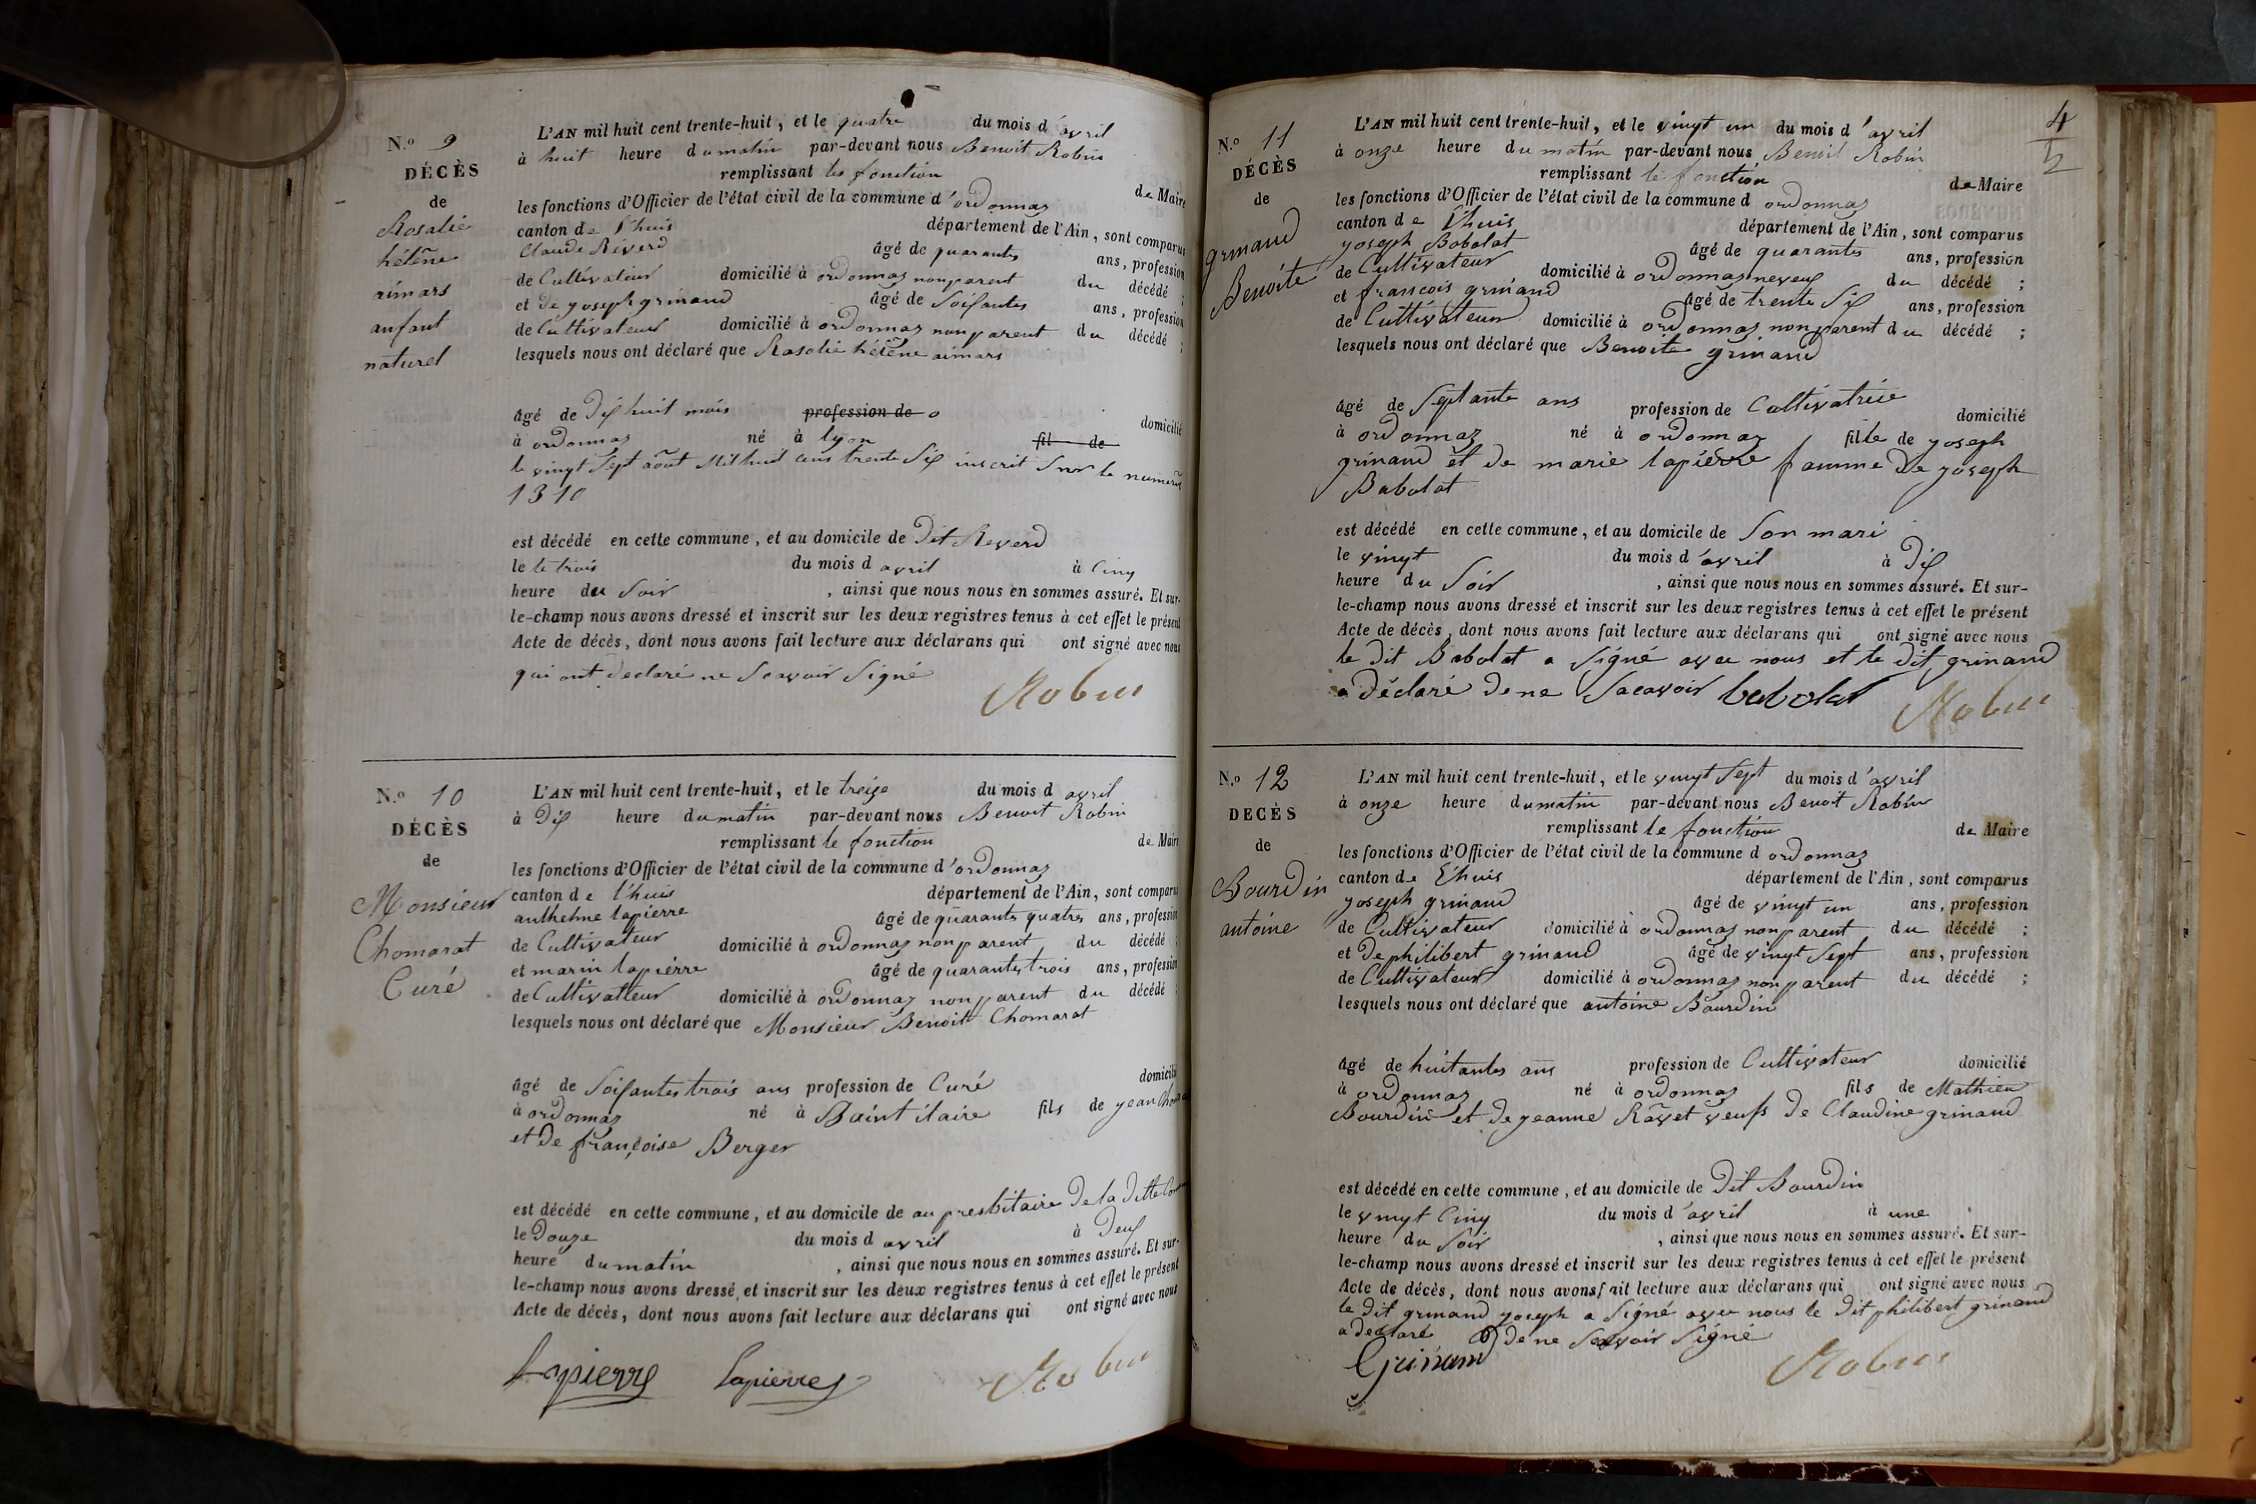 N.o 9
DÉCÈS
de
Rosalie
hélène
aimars
anfant
naturel
L'AN mil huit cent trente-huit, et le quatre du mois d'avril
à huit heure du matin par-devant nous Benoit Robin
remplissant les fonction de Maire
les fonctions d'Officier de l'état civil de la commune d'ordonnaz
canton de l'huis département de l'Ain, sont comparus
Claude Réverd âgé de quarante ans, profession
de Cultivateur domicilié à ordonnaz non parent du décédé ;
et de yoseph grinand âgé de Soifantes ans, profession
de Cultivateur domicilié à ordonnaz non parent du décédé ;
lesquels nous ont déclaré que Rosalie hélène aimars
âgé de Dif huit mois profession de o domicilié
à ordonnaz né à lyon fil de
le vingt Sept août Mil huit cens trente Sif inscrit Sur le numero
1310
est décédé en cette commune, et au domicile de Dit Reverd
le le trois du mois d avril à Cinq
heure du Soir, ainsi que nous nous en sommes assuré. Et sur-
le-champ nous avons dressé et inscrit sur les deux registres tenus à cet effet le présent
Acte de décès, dont nous avons fait lecture aux déclarans qui ont signé avec nous
qui ont declaré ne Scavoir Signé
Robin
N.o 10
DÉCÈS
de
Monsieur
Chomarat
Curé
L'AN mil huit cent trente-huit, et le treize du mois d avril
à Dif heure du matin par-devant nous Benoit Robin
remplissant le fonction de Maire
les fonctions d'Officier de l'état civil de la commune d'ordonnaz
canton de l'huis département de l'Ain, sont comparus
anthelme lapierre âgé de quarante quatre ans, profession
de Cultivateur domicilié à ordonnaz non parent du décédé ;
et marin lapierre âgé de quarantes trois ans, profession
de Cultivatteur domicilié à ordonnaz non parent du décédé ;
lesquels nous ont déclaré que Monsieur Benoit Chomarat
âgé de Soifantes trois ans profession de Curé domicilié
à ordonnaz né à Saint ilaire fils de yean
et de françoise Berger
est décédé en cette commune, et au domicile de au presbitaire De la Ditte
le Douze du mois d avril à Deuf
heure du matin, ainsi que nous nous en sommes assuré. Et sur-
le-champ nous avons dressé, et inscrit sur les deux registres tenus à cet effet le présent
Acte de décès, dont nous avons fait lecture aux déclarans qui ont signé avec nous
Lapierre Lapierre Robin
4
N.o 11
DÉCÈS
de
grinand
Benoite
L'AN mil huit cent trente-huit, et le vingt un du mois d'avril
à onze heure du matin par-devant nous Benoit Robin
remplissant le fonction de Maire
les fonctions d'Officier de l'état civil de la commune d ordonnaz
canton de l'huis département de l'Ain, sont comparus
yoseph Babolat âgé de quarante ans, profession
de Cultivateur domicilié à ordonnaz neveuf du décédé ;
et francois grinand âgé de trente Sif ans, profession
de Cultivateur domicilié à ordonnaz non parent du décédé ;
lesquels nous ont déclaré que Benoite grinand
âgé de Septante ans profession de Cultivatrice domicilié
à ordonnaz né à ordonnaz fille de yoseph
grinand et de marie lapierre famme De yoseph
Babolat
est décédé en cette commune, et au domicile de Son mari
le vingt du mois d'avril à Dif
heure du Soir, ainsi que nous nous en sommes assuré. Et sur-
le-champ nous avons dressé et inscrit sur les deux registres tenus à cet effet le présent
Acte de décès, dont nous avons fait lecture aux déclarans qui ont signé avec nous
le Dit Babolat a Signé avec nous et le Dit grinand
a Déclaré De ne Sacavoir babolat Robin
N.o 12
DECÈS
de
Bourdin
antoine
L'AN mil huit cent trente-huit, et le vingt Sept du mois d'avril
à onze heure du matin par-devant nous Benoit Robin
remplissant le fonction de Maire
les fonctions d'Officier de l'état civil de la commune d ordonnaz
canton de L'huis département de l'Ain, sont comparus
yoseph grinand âgé de vingt un ans, profession
de Cultivateur domicilié à ordonnaz non parent du décédé ;
et De philibert grinand âgé de vingt Sept ans, profession
de Cultivateur domicilié à ordonnaz non parent du décédé ;
lesquels nous ont déclaré que antoine Bourdin
âgé de huitantes ans profession de Cultivateur domicilié
à ordonnaz né à ordonnaz fils de Mathieu
Bourdin et de yeanne Ravet veufs De Claudine grinand
est décédé en cette commune, et au domicile de Dit Bourdin
le vingt Cinq du mois d'avril à une
heure du Soir, ainsi que nous nous en sommes assuré. Et sur-
le-champ nous avons dressé et inscrit sur les deux registres tenus à cet effet le présent
Acte de décès, dont nous avons fait lecture aux déclarans qui ont signé avec nous
le Dit grinand yoseph a Signé avec nous le Dit philibert grinand
a Declaré De ne Scavoir Signé
Grinand Robin